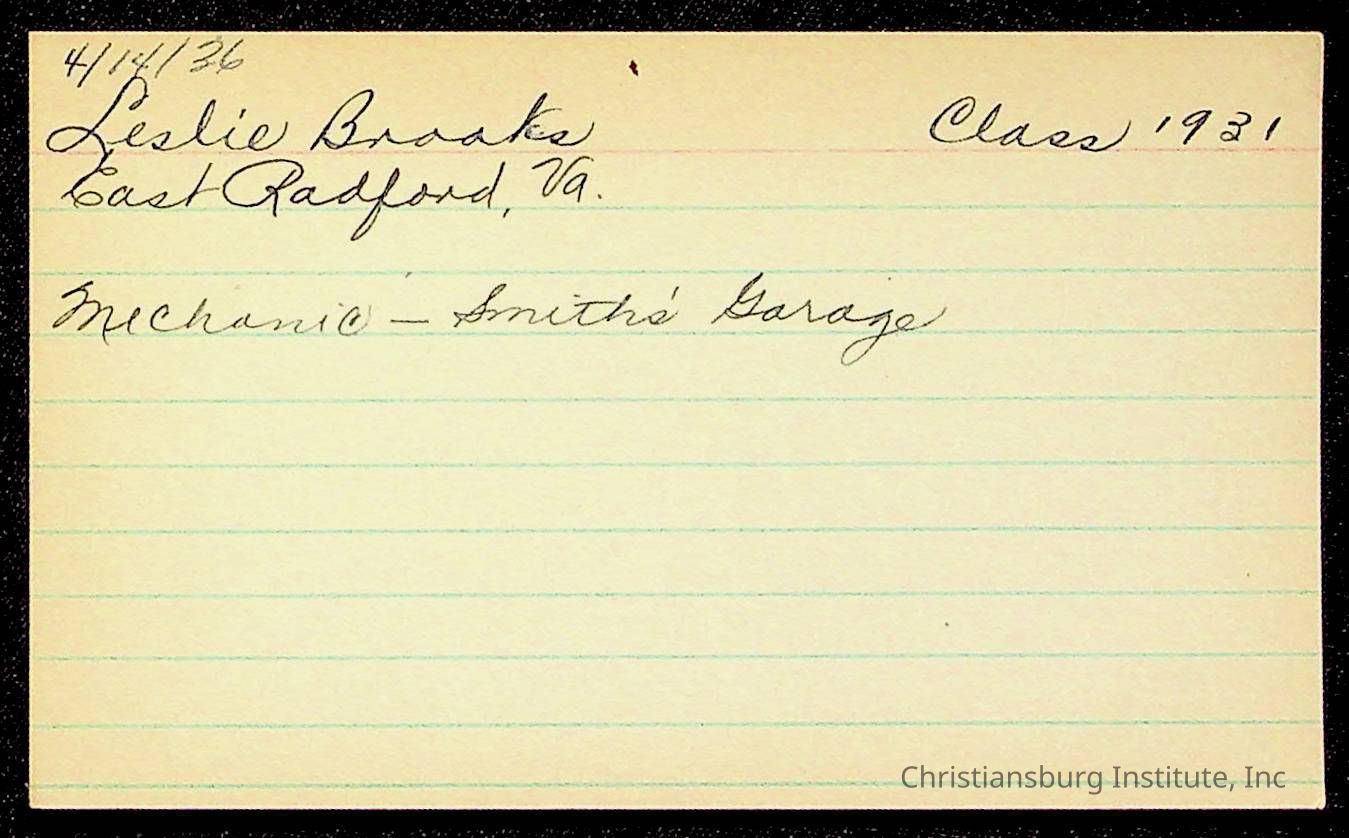 4/14/36
Leslie Brooks Class 1931
East Radford, Va.
Mechanic - Smith's Garage
Christiansburg Institute, Inc